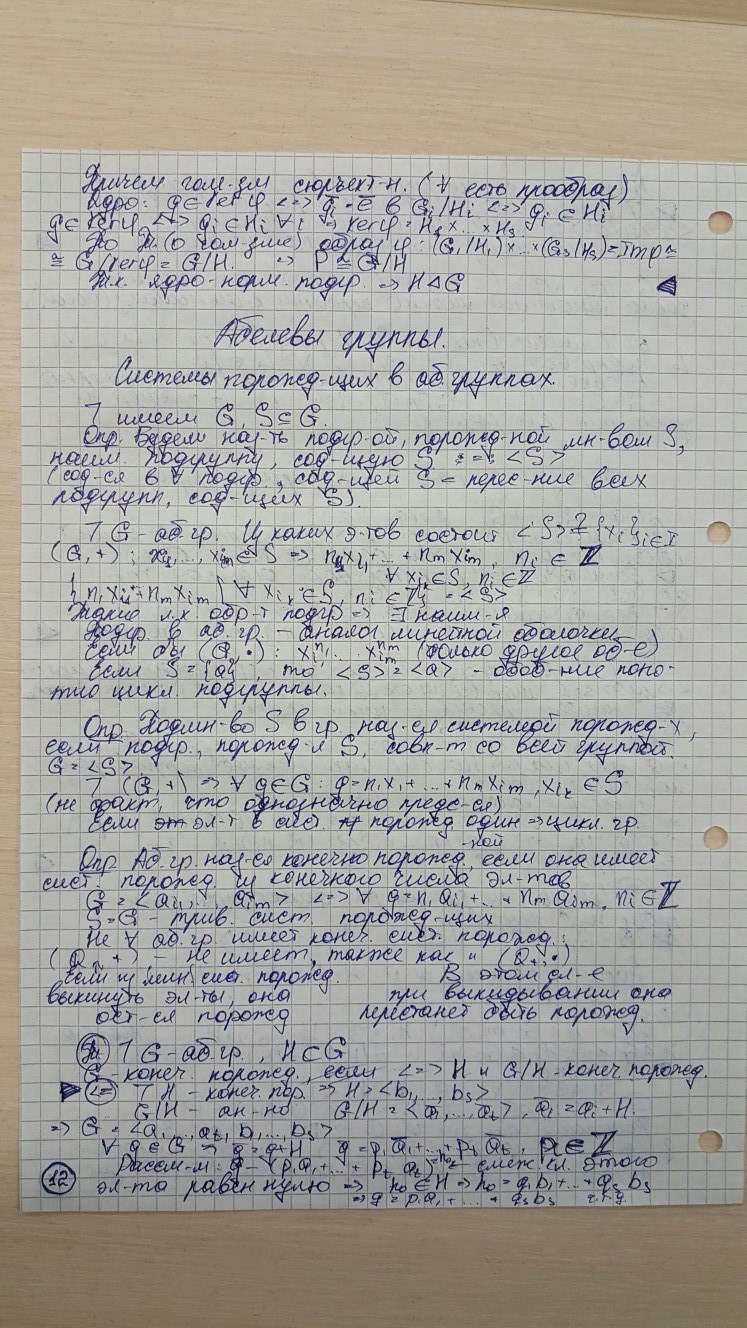 Причем гом-зм сюръект-н. (∀ есть прообраз)
Ядро: g∈Kerφ <=> g̅i = e̅ в Gi/Hi <=> gi ∈ Hi
g∈Kerφ <=> gi∈Hi ∀i => Kerφ = H1×...×Hs
По Т. (о гом-зме) образ φ: (G1/H1)×...×(Gs/Hs) = Imφ ≅
≅ G/Kerφ = G/H. => P ≅ G/H
Т.к. ядро - норм. подгр. => H ⊲ G
Абелевы группы.
Системы порожд-щих в аб. группах.
⅂ имеем G, S⊆G
Опр. Будем наз-ть подгр-ой, порожд-ной мн-вом S,
наим. подгруппу, сод-щую S. :=: <S>
(сод-ся в ∀ подгр., сод-щей S = перес-ние всех
подгрупп, сод-щих S).
⅂ G - аб. гр. Из каких э-тов состоит <S>? {xi}i∈I
(G,+): xi1,...,xim∈S => n1xi1+...+nmxim, ni ∈ ℤ
∀ xik∈S, ni∈ℤ
{n1xi1+...+nmxim | ∀ xik∈S, ni∈ℤ} = <S>
Такие л.к обр-т подгр => ∃ наим-я
Подгр. в аб. гр. - аналог линейной оболочки
Если бы (G,•): xi1^n1...xim^nm (только другое об-е)
Если S={a}, то <S>=<a> - обоб-ние поня-
тия цикл. подгруппы.
Опр Подмн-во S в гр. наз-ся системой порожд-х,
если подгр., порожд-я S, совп-т со всей группой
G=<S>
⅂ (G,+) => ∀ g∈G: g=n1x1+...+nmxim, xik∈S
(не факт, что однозначно предс-ся)
Если эл-т в сист. порожд один => цикл. гр.
Опр Аб. гр. наз-ся конечно порожд-ной если она имеет
сист. порожд. из конечного числа эл-тов
G = <ai1,...,aim> <=> ∀ g=n1ai1+...+nmaim, ni∈ℤ
S=G - трив. сист. порожд-щих
Не ∀ аб. гр имеет конеч. сист. порожд.:
(Q,+) - не имеет, также как и (Q+,•)
Если из мин сист. порожд. В этом сл-е
выкинуть эл-ты, она при выкидывании она
ост-ся порожд перестанет быть порожд.
Т. ⅂ G - аб. гр., H⊂G
G - конеч. порожд., если <=> H и G/H - конеч. порожд.
<= ⅂ H - конеч. пор. => H=<b1,...,bs>
G/H - ан-но G/H = <a̅1,...,a̅t>, a̅i = ai+H.
=> G = <a1,...,at, b1,...,bs>
∀ g∈G => g̅=g+H g̅ = p1a̅1+...+pta̅t, pi∈ℤ
Рассм-м: g-(p1a1+...+ptat)=h0 - смеж. кл. этого
эл-та равен нулю => h0∈H => h0=q1b1+...+qsbs
=> g=p1a1+...+qsbs ч.т.д.
12